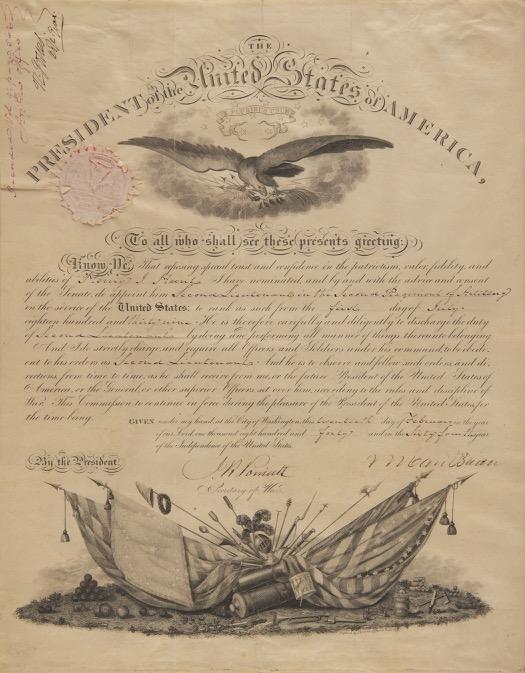 THE
PRESIDENT of the United States of AMERICA,
E PLURIBUS UNUM
To all who shall see these presents greeting:
Know Ye, That reposing special trust and confidence in the patriotism, valor, fidelity, and
abilities of Henry J. Hunt I have nominated, and by and with the advice and consent
of the Senate, do appoint him Second Lieutenant in the Second Regiment of Artillery
in the service of the United States: to rank as such from the first day of July
eighteen hundred and thirty nine. He is therefore carefully and diligently to discharge the duty
of Second Lieutenant by doing and performing all manner of things thereunto belonging.
And I do strictly charge, and require all Officers and Soldiers under his command, to be obedi-
ent to his orders as Second Lieutenant. And he is to observe and follow such orders, and di-
rections, from time to time, as he shall receive from me, or the future President of the United States of
America, or the General or other superior Officers set over him, according to the rules and discipline of
War. This Commission to continue in force during the pleasure of the President of the United States, for
the time being.
GIVEN under my hand, at the City of Washington, this twentieth day of February in the year
of our Lord, one thousand eight hundred and forty and in the Sixty fourth year
of the Independence of the United States.
By the President,
J. R. Poinsett
M Van Buren
Secretary of War.